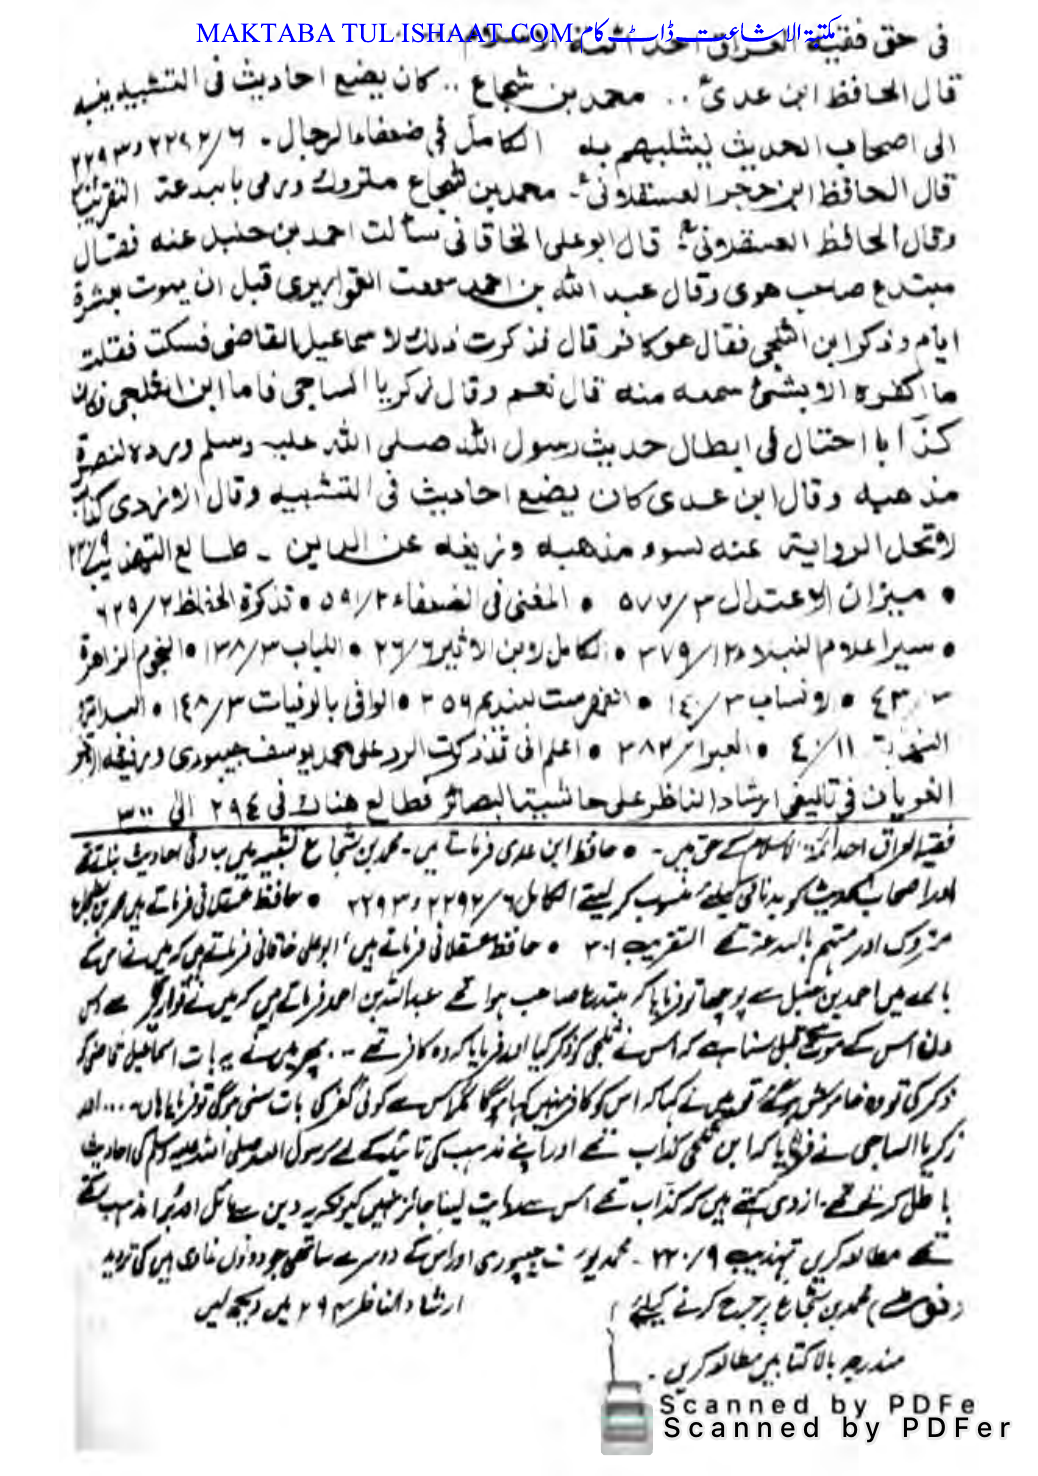 MAKTABA TUL ISHAAT.COM مکتبۃ الاشاعت ڈاٹ کام
فی حق فقیہ العراق احد ائمۃ الاسلام
قال الحافظ ابن عدیؒ .. محمد بن شجاع .. کان یضع احادیث فی التشبیہ ینسبہ
الی اصحاب الحدیث لیثلبھم بہ الکامل فی ضعفاء الرجال۔ ۶/۲۲۹۲ و ۲۲۹۳
قال الحافظ ابن حجر العسقلانیؒ۔ محمد بن شجاع متروک ورمی بالبدعۃ التقریب
وقال الحافظ العسقلانیؒ۔ قال ابو علی الخاقانی سألت احمد بن حنبل عنہ فقال
مبتدع صاحب ھوی وقال عبد اللہ بن احمد سمعت القواریری قبل ان یموت بعشرۃ
ایام وذکر ابن الثلجی فقال ھو کافر قال فذکرت ذلک لاسماعیل القاضی فسکت فقلت
ما اکفرہ الا بشیٔ سمعہ منہ قال نعم وقال زکریا الساجی فاما ابن الثلجی فکان
کذّابا احتال فی ابطال حدیث رسول اللہ صلی اللہ علیہ وسلم وردہ لنصرۃ
مذھبہ وقال ابن عدی کان یضع احادیث فی التشبیہ وقال الازدی کذاب
لا تحل الروایۃ عنہ لسوء مذھبہ وزیغہ عن الدین ۔ طالع التھذیب ۹/۲۲۰
• میزان الاعتدال ۳/۵۷۷ • المغنی فی الضعفاء ۲/۵۹۱ • تذکرۃ الحفاظ ۲/۶۲۹
• سیر اعلام النبلاء ۱۲/۳۷۹ • الکامل لابن الاثیر ۶/۲۶ • اللباب ۳/۱۳۸ • النجوم الزاھرۃ
• الانساب ۳/۱٤۰ • الفھرست لابن ندیم ۲۵۶ • الوافی بالوفیات ۳/۱٤۸ • البدایۃ
۱۱/٤۰ • العبر • اعلم انی قد ذکرت الرد علی محمد یوسف جیبوری ورفیقہ
الغویان فی تالیفی ارشاد الناظر علی حاشیۃ البصائر فطالع ھناک فی ۲۹٤ الی ۳۰۰
فقیہ العراق احد ائمۃ الاسلام کے حق میں۔ • حافظ ابن عدی فرماتے ہیں۔ محمد بن شجاع تشبیہ میں بناوٹی احادیث بناتے تھے
اور اصحاب الحدیث کو بدنامی کیلئے منسوب کر لیتے الکامل ۶/۲۲۹۲ و ۲۲۹۳ • حافظ عسقلانی فرماتے ہیں محمد بن شجاع
متروک اور متہم بالبدعۃ تھے التقریب ۳۰۱ • حافظ عسقلانی فرماتے ہیں، ابو علی خاقانی فرماتے ہیں کہ میں نے اس کے
بارے میں احمد بن حنبل سے پوچھا تو فرمایا کہ مبتدع صاحب ہوا تھے عبد اللہ بن احمد فرماتے ہیں کہ میں نے قواریری سے دس
دن اس کے موت سے قبل سنا ہے کہ اس نے ثلجی کو ذکر کیا اور فرمایا کہ وہ کافر تھے ... پھر میں نے یہ بات اسماعیل قاضی کو
ذکر کی تو وہ خاموش ہو گئے تو میں نے کہا کہ اس کو کافر نہیں کہا ہوگا مگر اس سے کوئی کفر کی بات سنی ہوگی تو فرمایا ہاں... اور
زکریا الساجی نے فرمایا کہ ابن ثلجی کذاب تھے اور اپنے مذہب کی تائید کے لے رسول اللہ صلی اللہ علیہ وسلم کی احادیث
باطل کرتے تھے۔ ازدی کہتے ہیں کہ کذّاب تھے اس سے روایت لینا جائز نہیں کیونکہ یہ دین سے مائل اور بُرا مذہب رکھتے
تھے مطالعہ کریں تہذیب ۹/۲۲۰۔ محمد یوسف جیبوری اور اس کے دوسرے ساتھی جو دونوں غاوی ہیں کی تردید
(نوٹ) محمد بن شجاع پر جرح کرنے کیلئے ارشاد الناظر ۲۹٤ میں دیکھ لیں
مندرجہ بالا کتابیں مطالعہ کریں۔
Scanned by PDFe
Scanned by PDFer